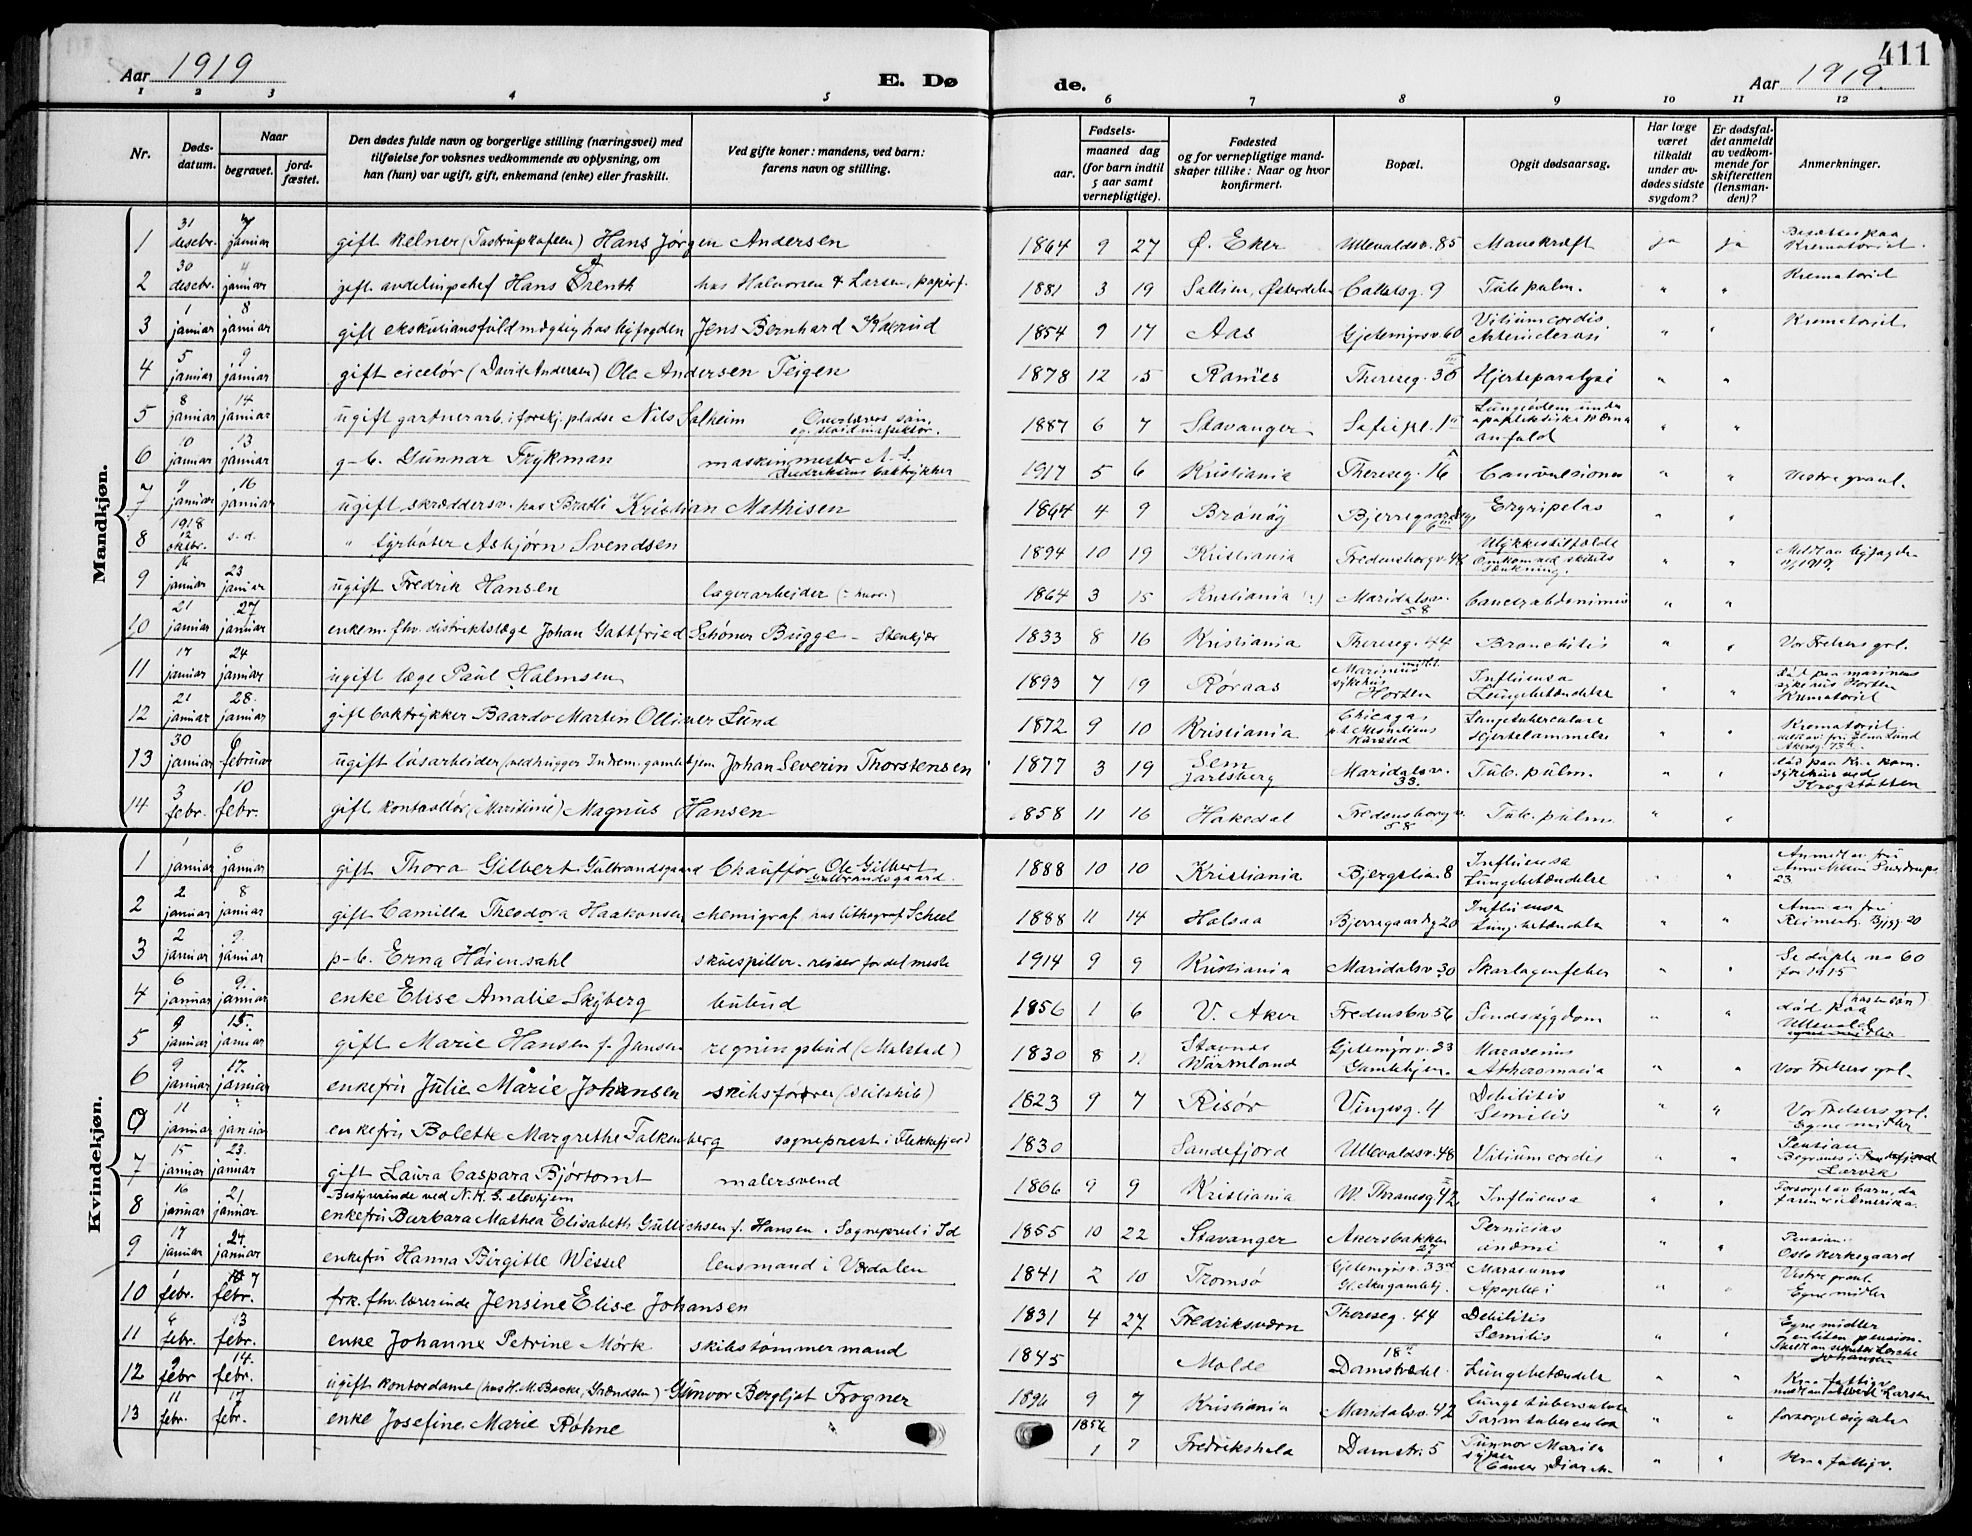 Aar 1919
E. Dø
de.
Aar 1919.
411
1 2 3 4 5 6 7 8 9 10 11 12
Nr.
Dødsdatum.
Naar
begravet.
jordfæstet.
Den dødes fulde navn og borgerlige stilling (næringsvei) med
tilføielse for voksnes vedkommende av oplysning, om
han (hun) var ugift, gift, enkemand (enke) eller fraskilt.
Ved gifte koner: mandens, ved barn:
farens navn og stilling.
Fødsels-
aar.
maaned dag
(for barn indtil
5 aar samt
vernepligtige).
Fødested
og for vernepligtige mandskaper tillike: Naar og hvor
konfirmert.
Bopæl.
Opgit dødsaarsag.
Har læge
været
tilkaldt
under avdødes sidste
sygdom?
Er dødsfaldet anmeldt
av vedkommende for
skifteretten
(lensmanden)?
Anmerkninger.
Mandkjøn.
1 31 desebr. 7 januar gift kelner (Tostrupkafeen) Hans Jørgen Andersen 1864 9 27 Ø. Eker Ullevaldsv. 85 Manskræft ja ja Krematoriet.
2 30 desebr. 4 januar gift avdelingschef Hans Ørenth hos Halvorsen & Larsen, papirf. 1881 3 19 Østerdalen Colletsg. 9 Tub. pulm. " " Krematoriet
3 1 januar 8 januar gift Jens Bernhard 1854 9 17 Aas Gjetemyrsv. 60 Vitium cordis " " Krematoriet
4 5 januar 9 januar gift ciselør (David Andersen) Ole Andersen Teigen 1878 12 15 Ramnes Thereseg. 36 III Hjerteparalysi " "
5 8 januar 14 januar ugift gartnerarb. i forskj. pladse Nils Salheim 1887 6 7 Stavanger Lungeødem under anfald " "
6 10 januar 13 januar g-b. Gunnar Frykman maskinmester A. S. boktrykker 1917 5 6 Kristiania Thereseg. 16 Convulsiones " " Vestre gravl.
7 januar 16 januar ugift skræddersv. hos Bratli Kristian Mathisen 1864 4 9 Brønøy Bjerregaardsg. Erysipelas " "
8 1918 12 oktbr. s. d. " fyrbøter Asbjørn Svendsen 1894 10 19 Kristiania Fredensborgv. 48 Ulykkestilfælde Omkom ved skibets sænkning. " "
9 januar 23 januar ugift Fredrik Hansen lagerarbeider 1864 3 15 Kristiania Maridalsv. 58 Cancer abdominis " "
10 21 januar 27 januar enkem. fhv. distriktslæge Johan Gottfried Schöner Bugge – Stenkjær 1833 8 16 Kristiania Thereseg. 44 Bronchitis " " Vor Frelsers grl.
11 17 januar 24 januar ugift læge Paul Holmsen 1893 7 19 Røraas Marinens sykehus Horten Influensa Lungebetændelse " " død paa marinens sykehus Horten Krematoriet
12 21 januar 28. januar gift boktrykker Baardo Martin Olliver Lund 1872 9 10 Kristiania Chicago, Lungetuberculose Hjertelammelse " " Krematoriet
13 30 januar 6 februar ugift løsarbeider Johan Severin Thorstensen 1877 3 19 Sem Jarlsberg Maridalsv. 33. Tub. pulm. " " død paa Kra kom. sykehus ved Krogstøtten
14 3 febr. 10 febr. gift kontorist (Maritime) Magnus Hansen 1858 11 16 Hakedal Fredensborgv. 58 Tub. pulm. " "
Kvindekjøn.
1 1 januar 6 januar gift Thora Gilbert Gulbrandsgaard Chauffør Ole Gilbert Gulbrandsgaard. 1888 10 10 Kristiania Bjergslien 8 Influensa Lungebetændelse " " 23
2 2 januar 8 januar gift Camilla Theodora Haakonsen chemigraf hos lithograf Scheel 1888 11 14 Halsaa Bjerregaardsg 20 Influensa Lungebetændelse " "
3 2 januar 9. januar p-b. Erna Høiensahl skuespiller reiser for det meste 1914 9 9 Kristiania Maridalsv. 30 Skarlagenfeber " " Se daapls no 60 for 1915
4 6 januar 9. januar enke Elise Amalie Skyberg bybud 1856 1 6 V. Aker Fredensbv. 56 Sindssygdom " " død paa Ullevold
5 9 januar 15. januar gift Marie Hansen f. Jansen regningsbud (Malstad) 1830 8 Wärmland Gjetemyrsv. 33 Gamlehjem. Marasmus " " Vor Frelsers grl.
6 9 januar 17. januar enkefru Julie Marie Johansen skibsfører (seilskib) 1823 9 7 Risør Vingesg. 4 Debilitis Senilis " " Vor Frelsers grl. Egne midler
0 11 januar januar enkefru Bolette Margrethe Falkenberg sogneprest i Flekkefjord 1830 Sandefjord Ullevaldsv. 48 Vitium cordis " " Pension Begraves i Larvik
7 15 januar 23. januar gift Laura Caspara Bjørtomt malersvend 1866 9 9 Kristiania W. Thranesg. 42 Influensa " " Forsørget av barn, da faren er i Amerika.
8 16 januar 21 januar Bestyrerinde ved N. K. S. elevhjem enkefru Barbara Mathea Elisabeth Gullichsen f. Hansen. Sogneprest i Id 1855 10 22 Stavanger Akersbakken 27 Pernicios anæmi " " Pension. Oslo kirkegaard
9 17 januar 24. januar enkefru Hanna Birgitte Wessel lensmand i Værdalen 1841 2 10 Tromsø Gjetemyrsv. 33 Marasmus Apoplexi " " Vestre gravl. Egne midler
10 1 febr. 7 febr. frk. fhv. lærerinde Jensine Elise Johansen 1831 4 27 Fredriksværn Thereseg. 44 Debilitis Senilis " " Egne midler og liten pension
11 6 febr. 13 febr. enke Johanne Petrine Mørk skibstømmermand 1845 Molde Damstrædet 18 Lungebetændelse " "
12 9 febr 14. febr. ugift kontordame Gunvor Bergljot Frogner 1896 9 7 Kristiania Maridalsv. 42 Lungetuberculose Tarmtuberculose " " forsørget sig selv
13 11 febr. 17 febr. enke Josefine Marie Røhne 1856 1 7 Fredrikshald Damstr. 5 " "